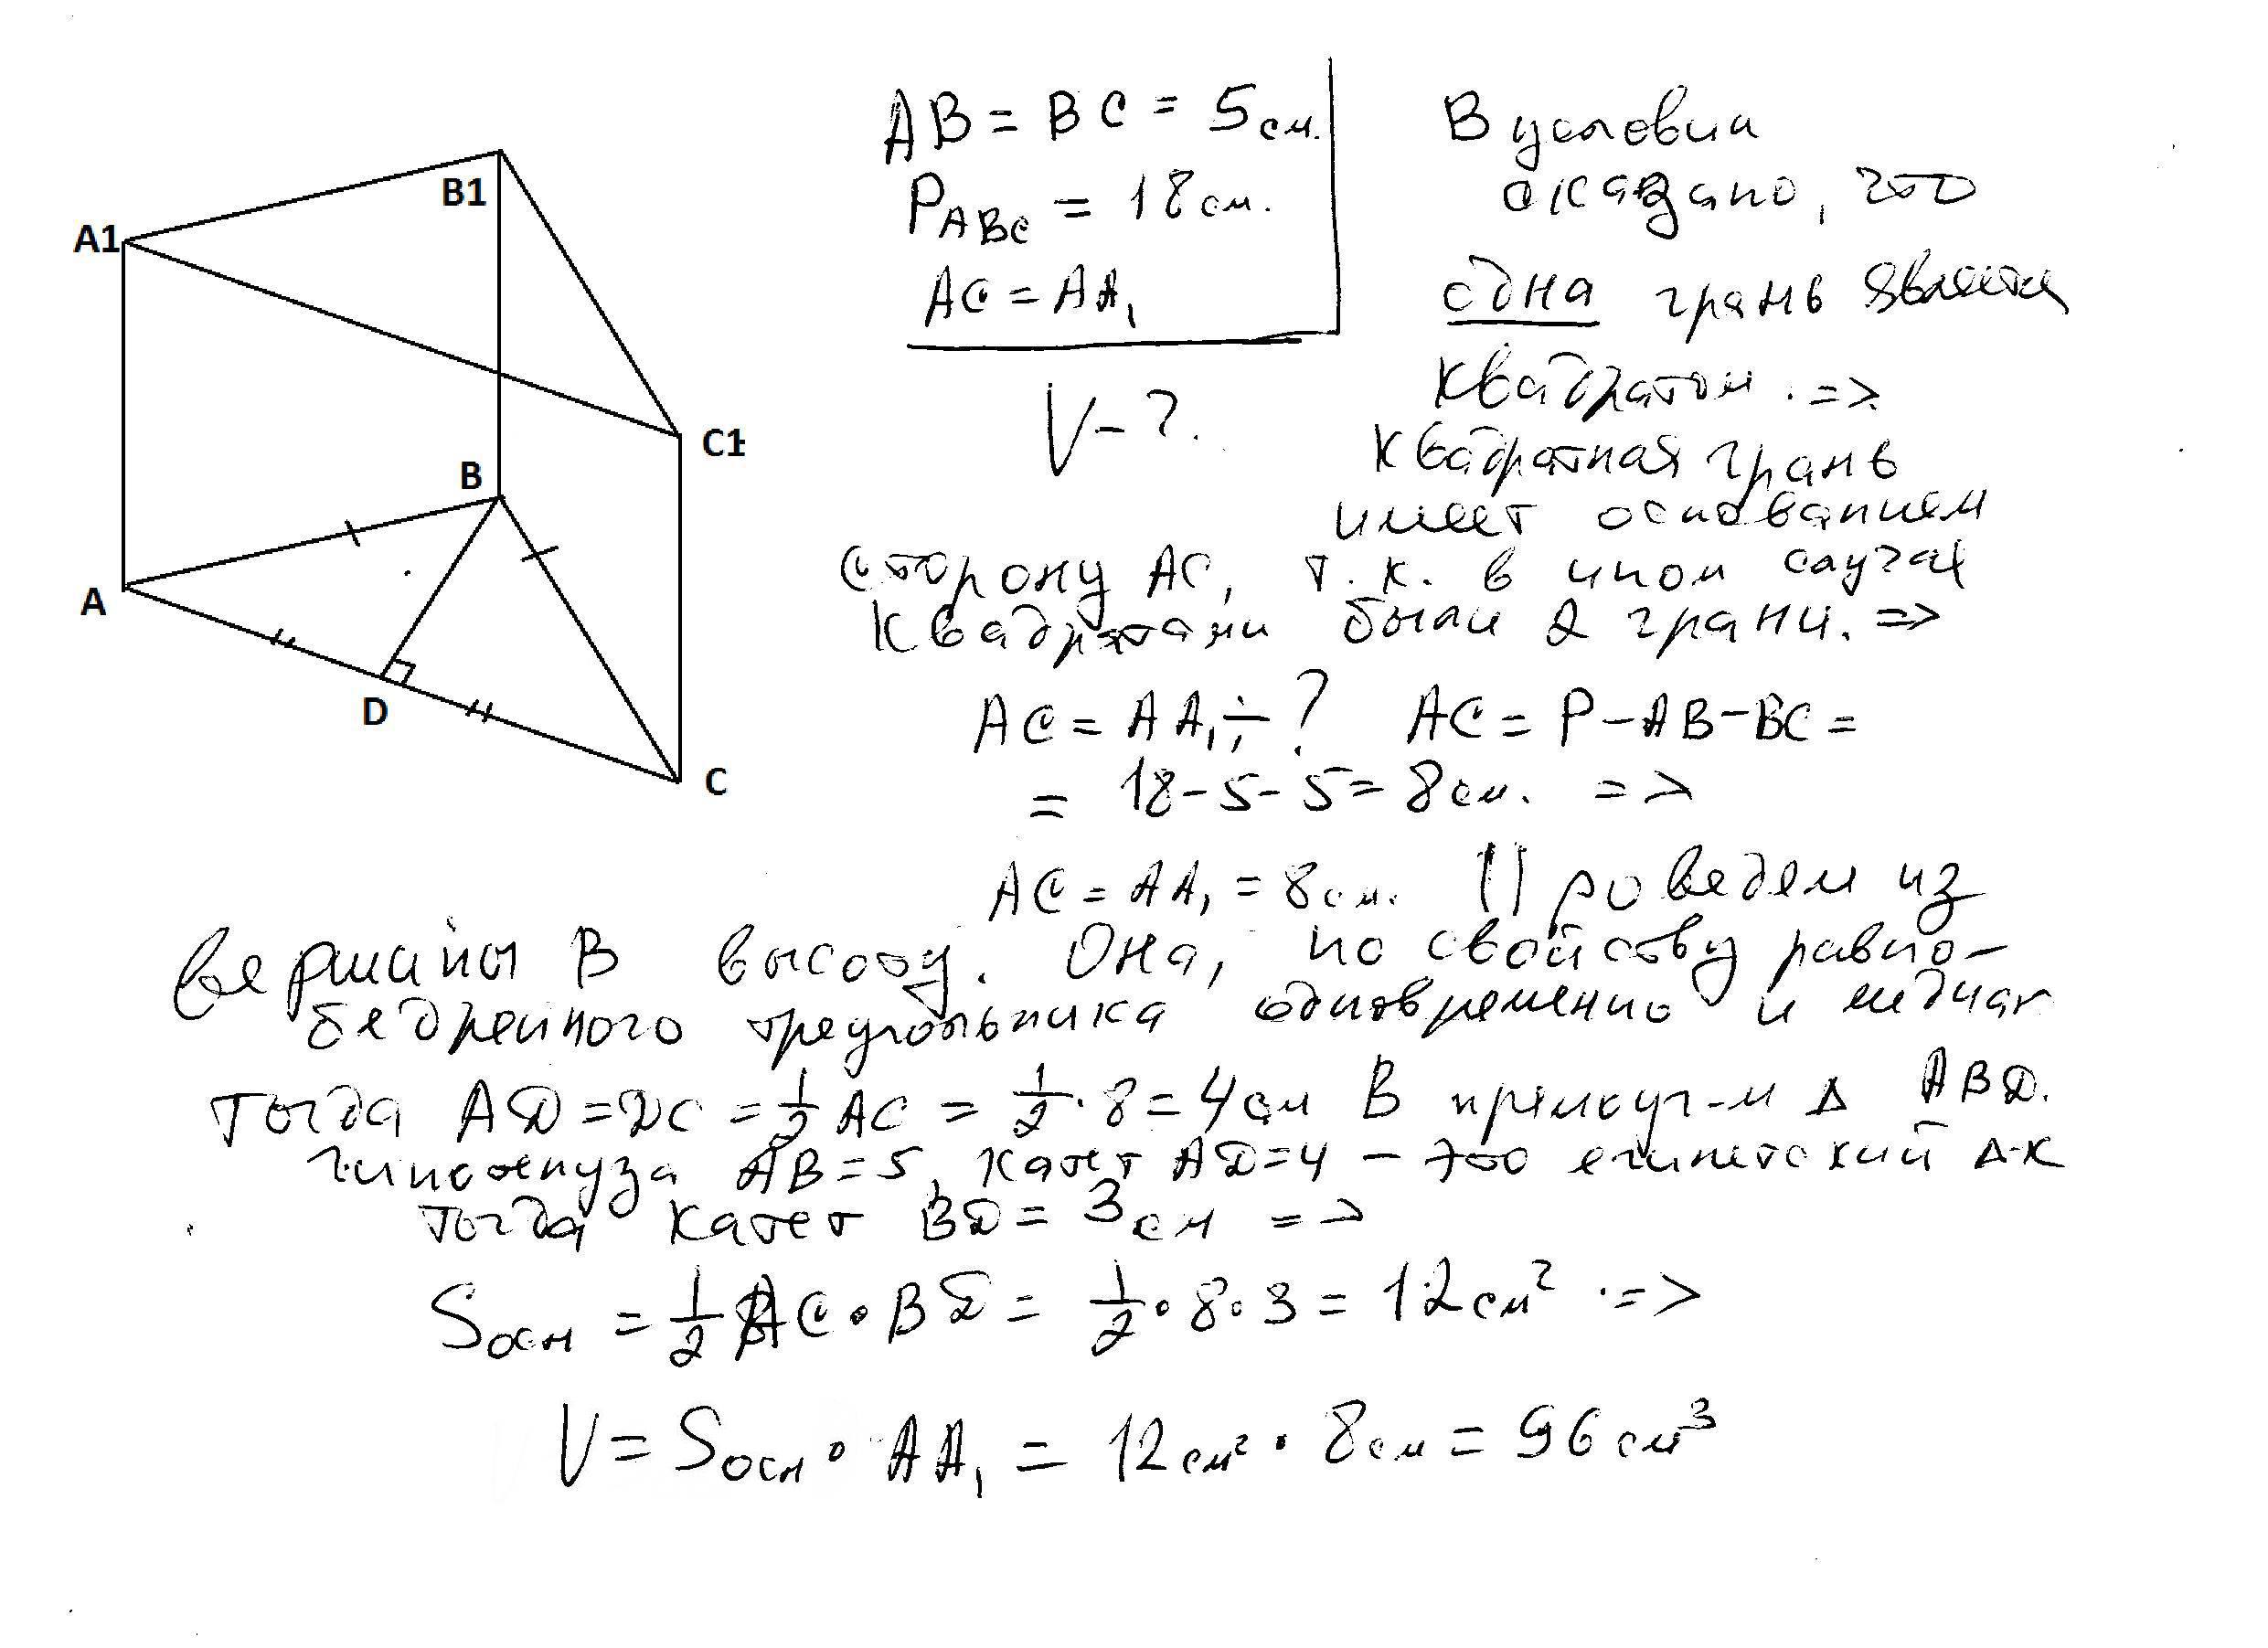 AB = BC = 5 см.
P ABC = 18 см.
AC = AA₁
V - ?
В условии
сказано, что
одна грань является
квадратом. =>
квадратная грань
имеет основанием
сторону AC, т.к. в ином случае
квадратами были 2 грани. =>
AC = AA₁ ÷ ? AC = P - AB - BC =
= 18 - 5 - 5 = 8 см. =>
AC = AA₁ = 8 см. Проведем из
вершины B высоту. Она, по свойству равно-
бедренного треугольника одновременно и медиан
Тогда AD = DC = 1/2 AC = 1/2 · 8 = 4 см В прямоуг-м Δ ABD.
гипотенуза AB = 5, катет AD = 4 - это египетский Δ-к
тогда катет BD = 3 см =>
Sосн = 1/2 AC · BD = 1/2 · 8 · 3 = 12 см² =>
V = Sосн · AA₁ = 12 см² · 8 см = 96 см³
A1
B1
C1
B
A
D
C